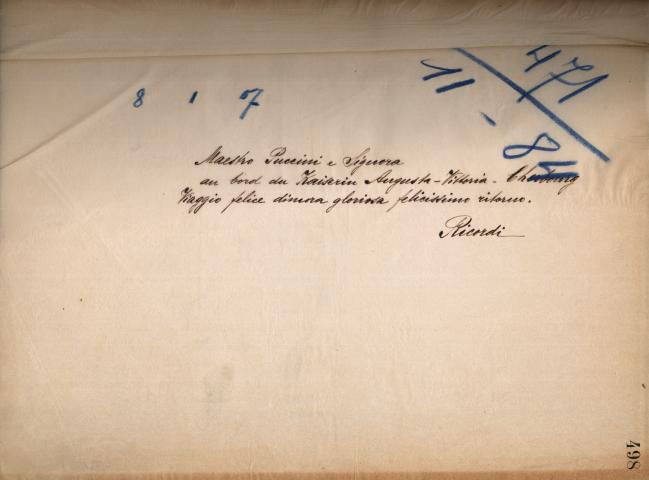 8 1 7
471
11 - 84
Maestro Puccini e Signora
au bord du Kaiserin Augusta-Viktoria - Cherbourg
Viaggio felice dimora gloriosa felicissimo ritorno.
Ricordi
498